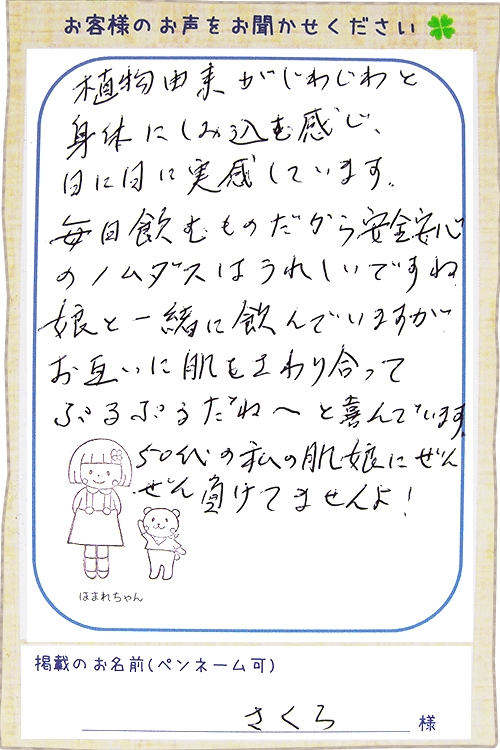 お客様のお声をお聞かせください
植物由来がじわじわと
身体にしみ込む感じ、
日に日に実感しています。
毎日飲むものだから安全安心
のノムダスはうれしいですね
娘と一緒に飲んでいますが
お互いに肌をさわり合って
ぷるぷるだね〜と喜んでいます。
50代の私の肌娘にぜん
ぜん負けてませんよ!
ほまれちゃん
掲載のお名前(ペンネーム可)
さくら 様